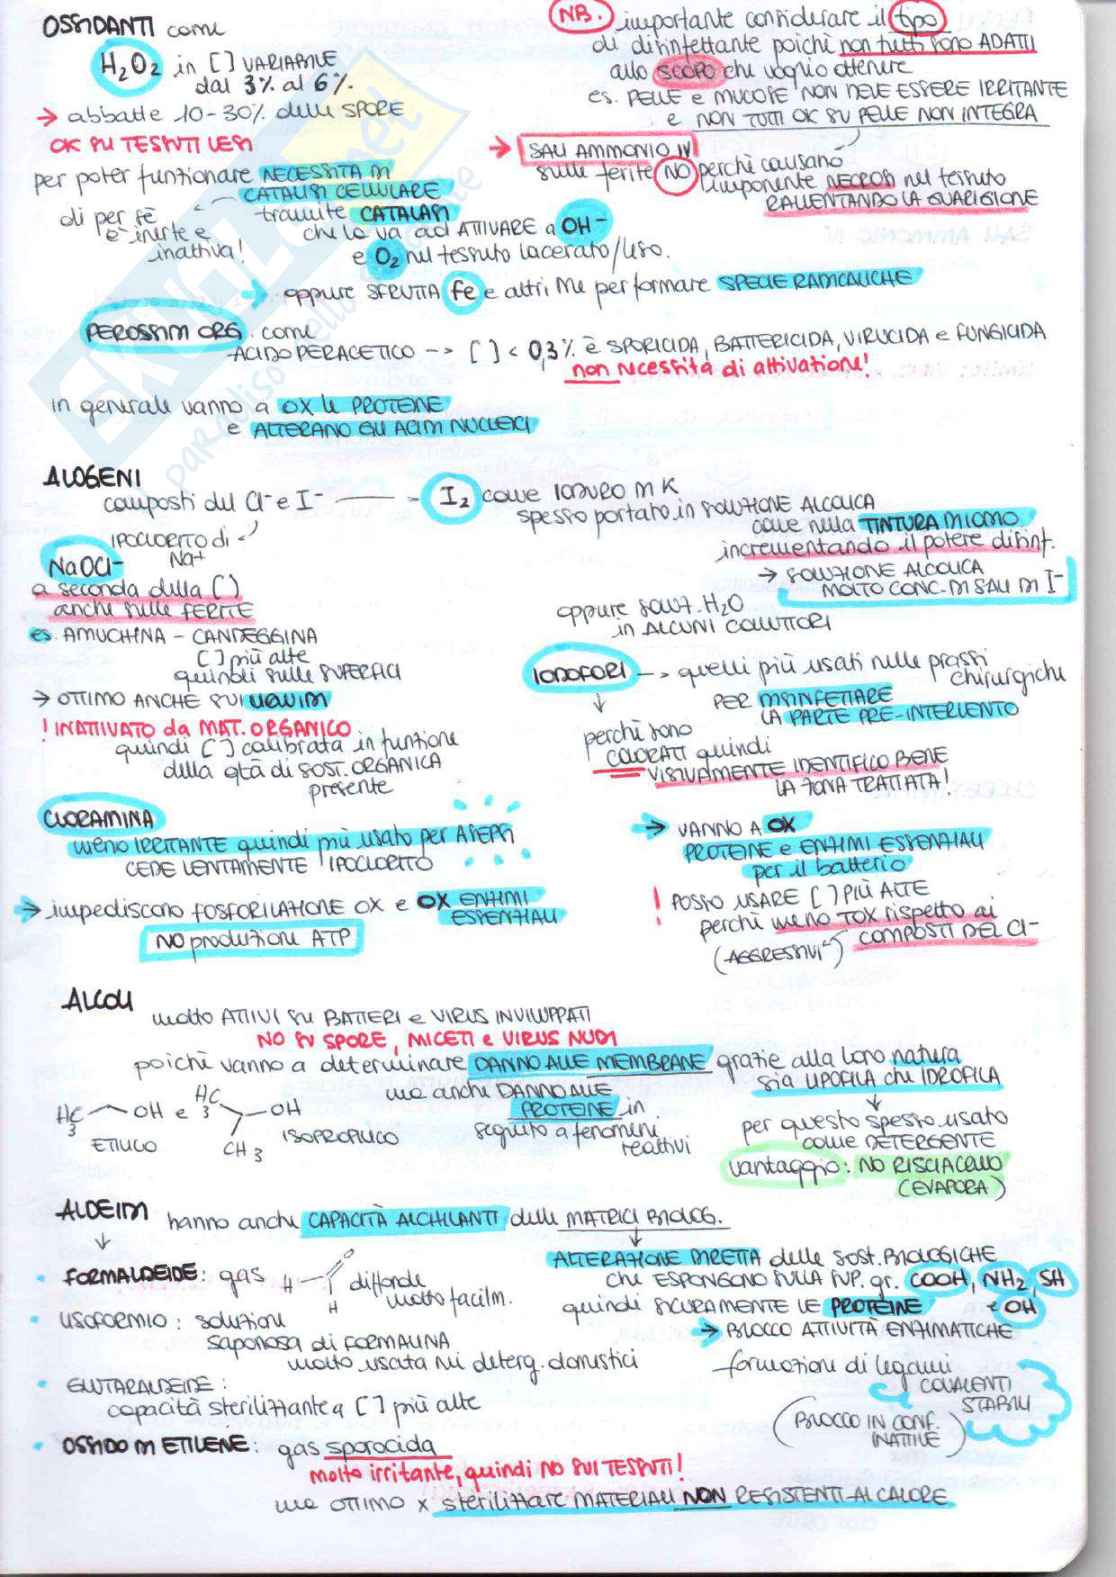 OSSIDANTI come
H2O2 in [ ] VARIABILE
dal 3% al 6%.
→ abbatte 10-30% delle SPORE
OK SU TESSUTI LESI
per poter funzionare NECESSITA DI
CATALISI CELLULARE
di per sè
è inerte e
inattiva!
tramite CATALASI
che la va ad ATTIVARE a OH-
e O2 nel tessuto lacerato/leso.
oppure SFRUTTA Fe e altri Me per formare SPECIE RADICALICHE
NB. importante considerare il tipo
di disinfettante poichè non tutti sono ADATTI
allo SCOPO che voglio ottenere
es. PELLE e MUCOSE NON DEVE ESSERE IRRITANTE
e NON TUTTI OK SU PELLE NON INTEGRA
→ SALI AMMONIO IV
sulle ferite NO perchè causano
imponente NECROSI nel tessuto
RALLENTANDO LA GUARIGIONE
PEROSSIDI ORG. come
-ACIDO PERACETICO --> [ ] < 0,3% è SPORICIDA, BATTERICIDA, VIRUCIDA e FUNGICIDA
non necessita di attivazione!
in generale vanno a OX le PROTEINE
e ALTERANO GLI ACIDI NUCLEICI
ALOGENI
composti del Cl- e I-
IPOCLORITO di
Na+
NaOCl-
a seconda della [ ]
anche sulle FERITE
es. AMUCHINA - CANDEGGINA
[ ] più alte
quindi sulle SUPERFICI
→ OTTIMO ANCHE SUI LIQUIDI
! INATTIVATO da MAT. ORGANICO
quindi [ ] calibrata in funzione
della qtà di SOST. ORGANICA
presente
I2 come IODURO DI K
spesso portato in SOLUZIONE ALCOLICA
come nella TINTURA DI IODIO
incrementando il potere disinf.
→ SOLUZIONE ALCOLICA
MOLTO CONC. DI SALI DI I-
oppure soluz. H2O
in ALCUNI COLLUTTORI
IODOFORI --> quelli più usati nelle prassi
chirurgiche
PER DISINFETTARE
LA PARTE PRE-INTERVENTO
↓
perchè sono
COLORATI quindi
VISIVAMENTE IDENTIFICO BENE
LA ZONA TRATTATA!
CLORAMINA
meno IRRITANTE quindi più usato per ASEPSI
CEDE LENTAMENTE IPOCLORITO
→ impediscono FOSFORILAZIONE OX e OX ENZIMI
ESSENZIALI
NO produzione ATP
→ VANNO A OX
PROTEINE e ENZIMI ESSENZIALI
per il batterio
! POSSO USARE [ ] PIÙ ALTE
perchè meno TOX rispetto ai
(AGGRESSIVI) COMPOSTI DEL Cl-
ALCOLI
molto ATTIVI SU BATTERI e VIRUS INVILUPPATI
NO SU SPORE, MICETI e VIRUS NUDI
poichè vanno a determinare DANNO ALLE MEMBRANE grazie alla loro natura
sia LIPOFILA che IDROFILA
ma anche DANNO ALLE
PROTEINE in
seguito a fenomeni
reattivi
H3C OH e H3C OH
ETILICO CH3 ISOPROPILICO
↓
per questo spesso usato
come DETERGENTE
vantaggio: NO RISCIACQUO
(EVAPORA)
ALDEIDI hanno anche CAPACITÀ ALCHILANTI delle MATRICI BIOLOG.
↓
• FORMALDEIDE: gas H O H diffonde
molto facilm.
• LISOFORMIO: soluzioni
saponosa di FORMALINA
molto usata nei deterg. domestici
• GLUTARALDEIDE:
capacità sterilizzante a [ ] più alte
• OSSIDO DI ETILENE: gas sporocida
molto irritante, quindi NO SUI TESSUTI!
ma OTTIMO x sterilizzare MATERIALI NON RESISTENTI AL CALORE
ALTERAZIONE DIRETTA delle SOST. BIOLOGICHE
che ESPONGONO SULLA SUP. gr. COOH, NH2, SH
quindi SICURAMENTE LE PROTEINE e OH
→ BLOCCO ATTIVITÀ ENZIMATICHE
formazioni di legami
COVALENTI
STABILI
(BLOCCO IN CONF.
INATTIVE)